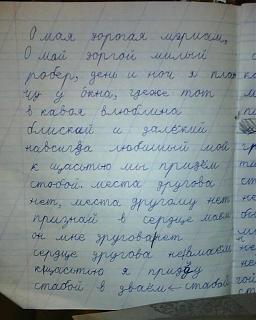 О мая дорогая мэриам,
О май доргой милый
робер, день и ноч я плач
чу у окна, гдеже тот
в кавоя влюблина
блиской и далёкий
навсигда любимый мой
к щастью мы придём
стобой. места другова
нет, места другому нет
признай в сердце маём
он мне друговa нет
сердце другова не маем
кщастью я приду
стабой в дваём стабой